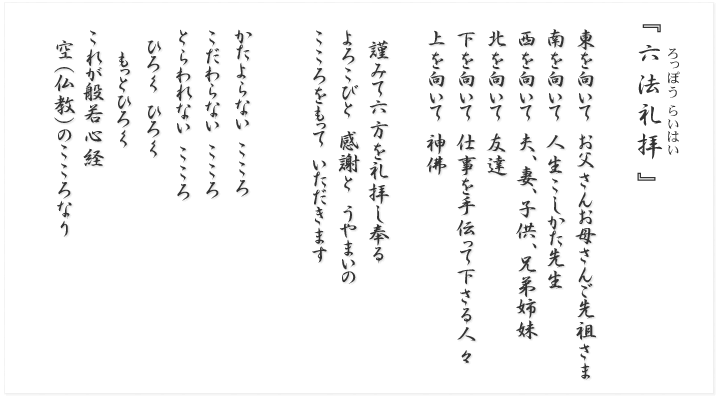 『六法礼拝』
ろっぽう らいはい
東を向いて お父さんお母さんご先祖さま
南を向いて 人生こしかた先生
西を向いて 夫、妻、子供、兄弟姉妹
北を向いて 友達
下を向いて 仕事を手伝って下さる人々
上を向いて 神佛
謹みて六方を礼拝し奉る
よろこびと 感謝と うやまいの
こころをもって いただきます
かたよらない こころ
こだわらない こころ
とらわれない こころ
ひろく ひろく
もっとひろく
これが般若心経
空(仏教)のこころなり